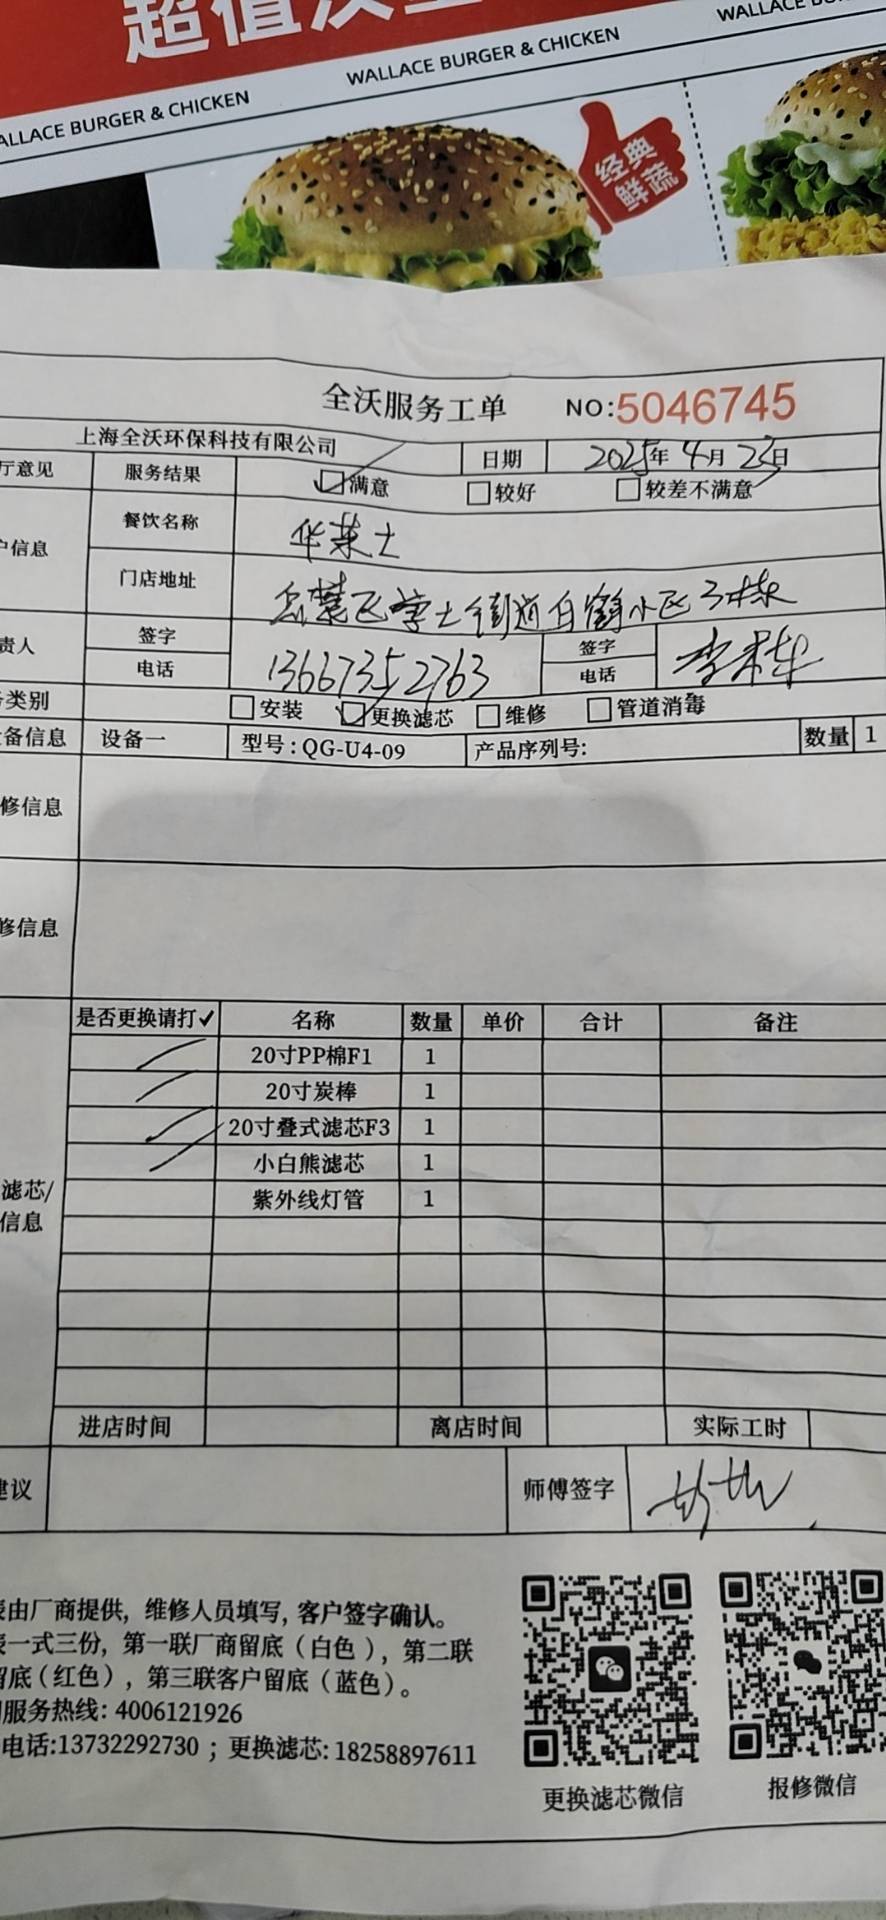 超值
WALLACE BURGER & CHICKEN
WALLACE BURGER & CHICKEN
ALLACE BURGER & CHICKEN
经典
鲜蔬
全沃服务工单 NO:5046745
上海全沃环保科技有限公司 日期 2025年4月23日
厅意见 服务结果 满意 较好 较差不满意
户信息 餐饮名称 华莱士
门店地址 岳麓区学士街道白鹤小区3栋
责人 签字 签字
电话 13667352763 电话
务类别 安装 更换滤芯 维修 管道消毒
备信息 设备一 型号:QG-U4-09 产品序列号: 数量 1
修信息
修信息
是否更换请打✓ 名称 数量 单价 合计 备注
20寸PP棉F1 1
20寸炭棒 1
20寸叠式滤芯F3 1
小白熊滤芯 1
滤芯/ 紫外线灯管 1
信息
进店时间 离店时间 实际工时
建议 师傅签字
表由厂商提供，维修人员填写，客户签字确认。
表一式三份，第一联厂商留底（白色），第二联
留底（红色），第三联客户留底（蓝色）。
服务热线: 4006121926
电话:13732292730 ；更换滤芯: 18258897611
更换滤芯微信 报修微信